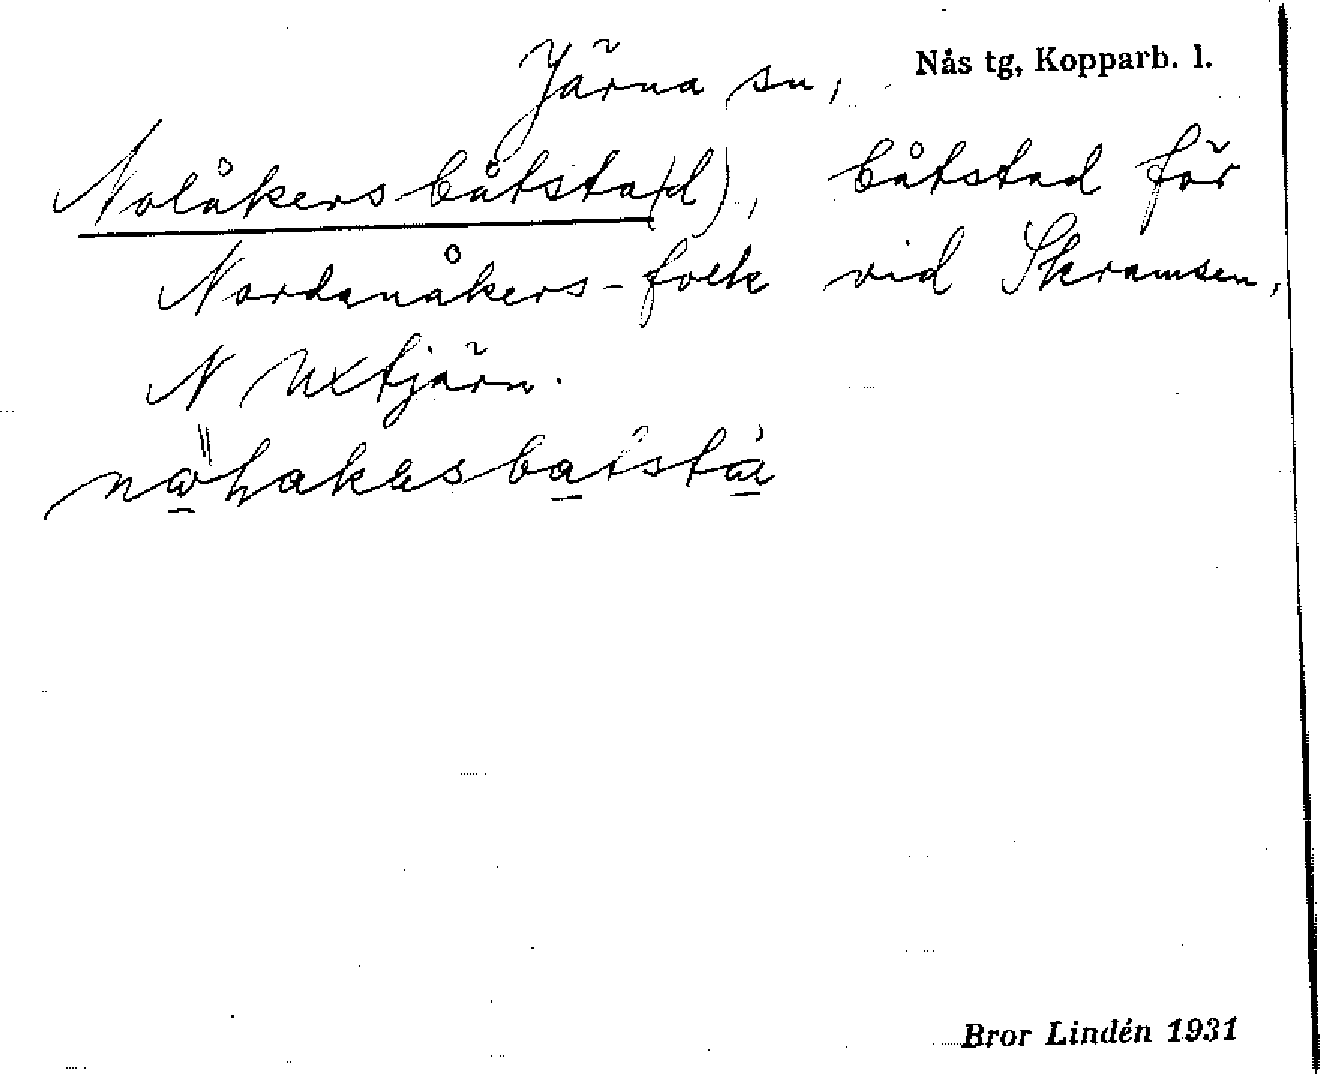 Järna sn, Nås tg, Kopparb. l.
Nolåkersbåtsta(d), båtstad för
Nordanåkers-folk vid Skramsen,
N Uxtjärn.
Bror Lindén 1931